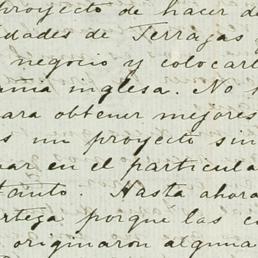 proyecto de hacer de
idades de Terrazas y
negocio y colocarl
aña inglesa. No s
para obtener mejores
s un proyecto sin
ar en el particula
tanto. Hasta ahora
rtega porque las c
originaron alguna